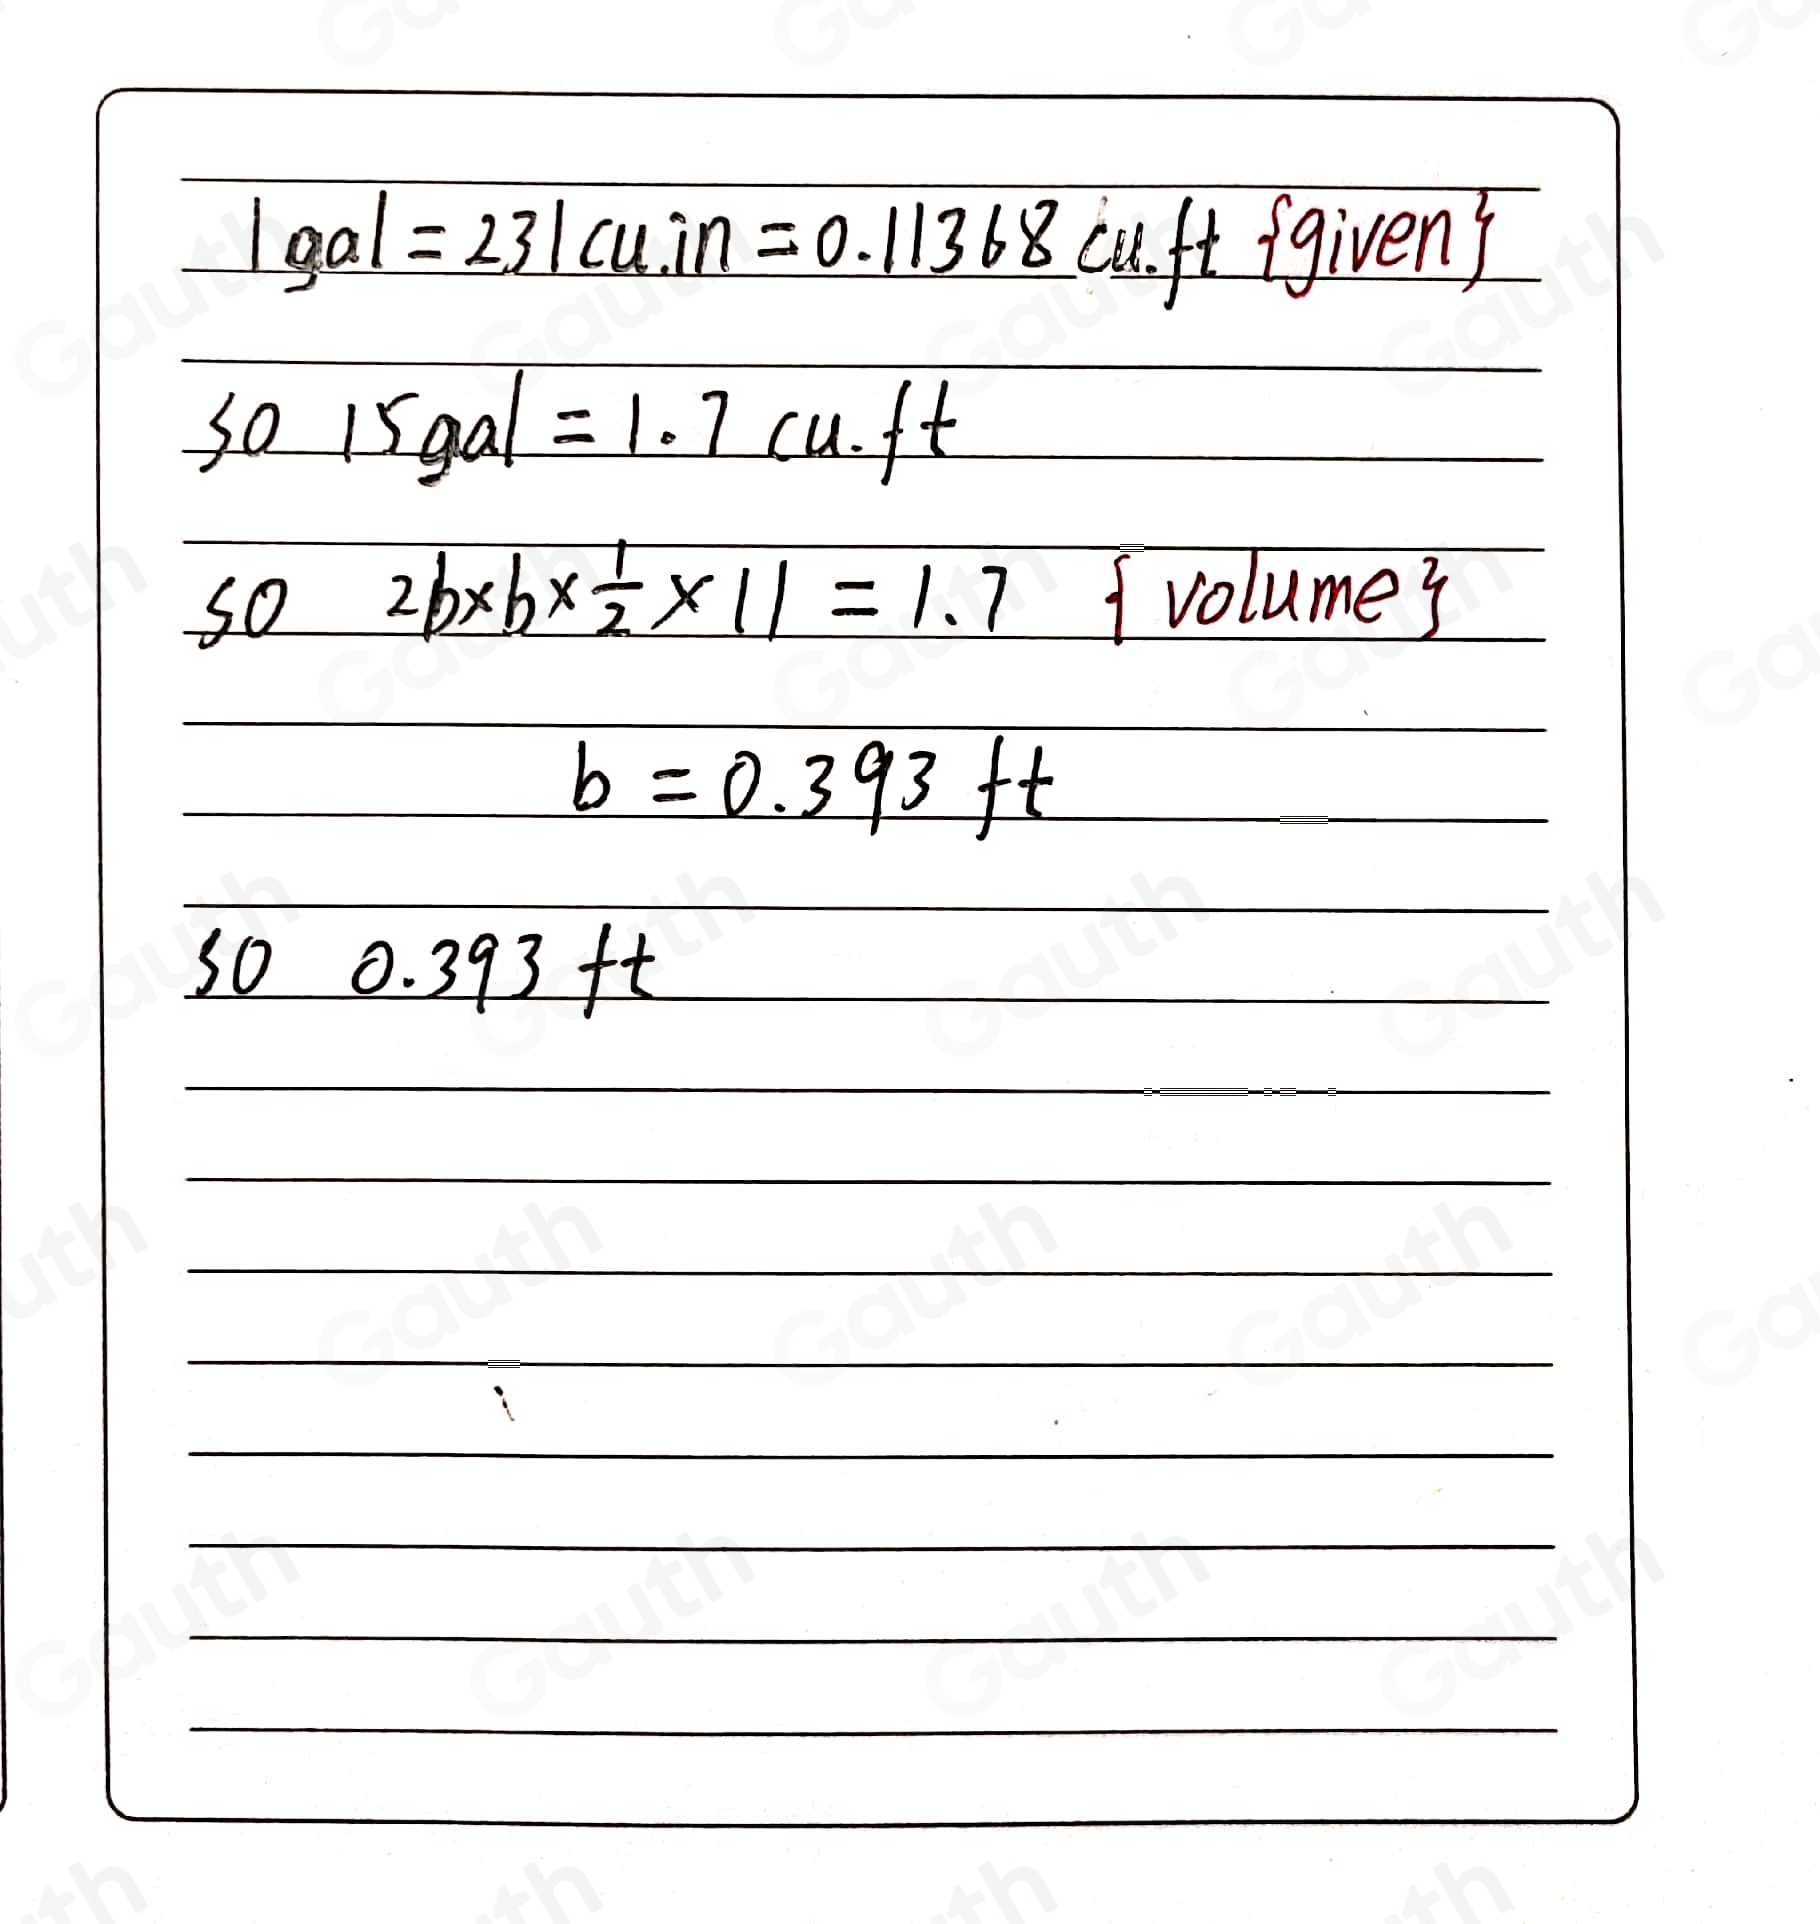 1 gal = 231 cu.in = 0.11368 cu.ft {given}
so 15 gal = 1.7 cu.ft
so 2b×b×1/2×11 = 1.7 {volume}
b = 0.393 ft
so 0.393 ft